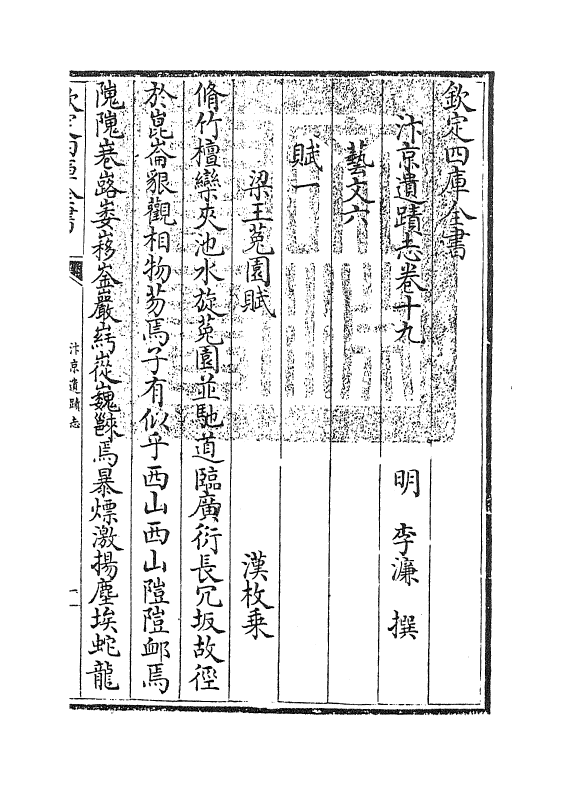 欽定四庫全書
汴京遺蹟志卷十九
明 李濂 撰
藝文六
賦一
梁王菟園賦
漢枚乗
脩竹檀欒夾池水旋菟園並馳道臨廣衍長冗坂故徑
於崑崙貇觀相物芴焉子有似乎西山西山隑隑䘏焉
隗隗巻路崣𡺨崟巖㟏嵷巍𪩎焉暴熛激揚塵埃蛇龍
汴京遺蹟志